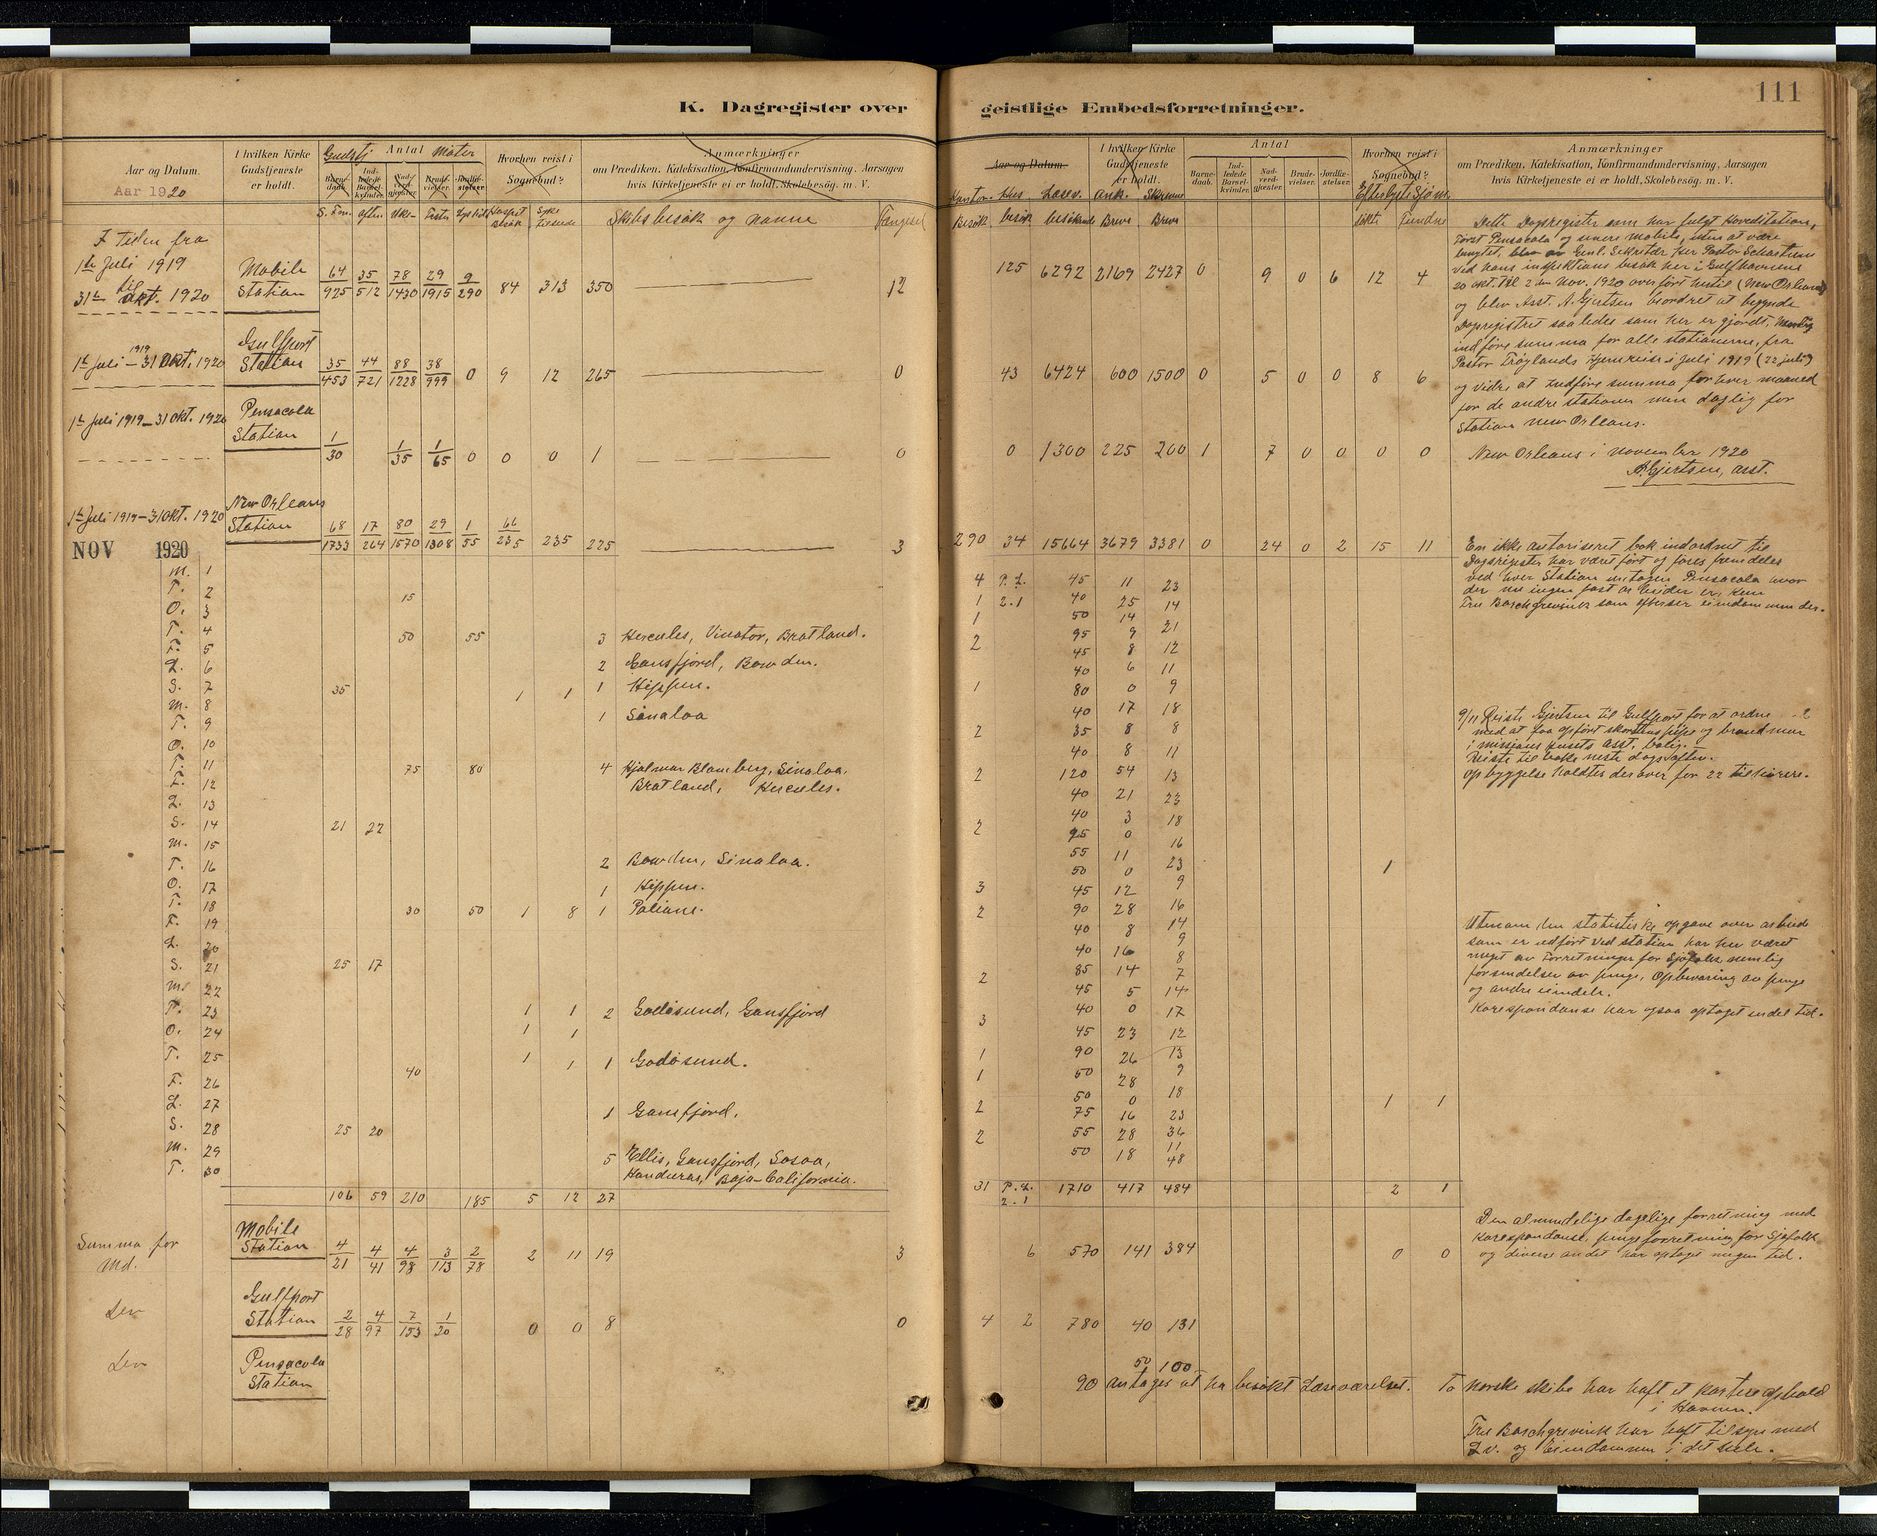 K. Dagregister over geistlige Embedsforretninger.
111
Aar og Datum.
Aar 1920
I hvilken Kirke Gudstjeneste er holdt.
Gudstj Antal Møter
Barnedaab. Indledede Barselkvinder. Nadverdgjester. Brudevielser. Jordfæstelser.
Hvorhen reist i Sognebud?
Anmærkninger
om Prædiken. Katekisation. Konfirmandundervisning. Aarsagen
hvis Kirketjeneste ei er holdt. Skolebesøg. m. V.
S. Fm. aften Uke- Fester Sykes
Skibsbesøk og navne
Fængsel
I tiden fra
1ste Juli 1919
til
31te okt. 1920
Mobile
Station
64 35 78 29 9
925 512 1430 1915 290 84 313 350 12
Gulfport
1ste juli 1919 - 31 okt. 1920 Station 35 44 88 38
453 721 1228 999 0 9 12 265 0
1ste juli 1919 - 31 okt. 1920 Pensacola
Station 1 1 1
30 35 65 0 0 0 1 0
New Orleans
1ste juli 1919 - 31 okt. 1920 Station 68 17 80 29 1 66
1733 264 1570 1308 55 235 235 225 3
NOV 1920
M. 1
T. 2 15
O. 3
T. 4 50 55 3 Hercules, Vinator, Bratland.
F. 5
L. 6 2 Gansfjord, Bowden.
S. 7 35 1 1 1 Kippen.
M. 8
T. 9 1 Sinaloa
O. 10
T. 11 75 80 4 Hjalmar Blomberg, Sinaloa,
F. 12 Bratland, Hercules.
L. 13
S. 14 21 22
M. 15
T. 16 2 Bowden, Sinaloa.
O. 17 1 Kippen.
T. 18 30 50 1 8 1
F. 19
L. 20
S. 21 25 17
M. 22
T. 23 1 1 2 Godøsund, Gansfjord
O. 24 1 1
T. 25 40 1 1 1 Godøsund.
F. 26
L. 27 1 Gansfjord.
S. 28 25 20
M. 29 5 Ellis, Gansfjord, Sosoa,
T. 30 Honduras, Baja-California.
106 59 210 185 5 12 27
Summa for
Md.
Mobile
Station 4 4 4 3 2
21 41 98 113 78 2 11 19 3
Gulfport
Station 2 4 7 1
28 97 153 20 0 0 8 0
Pensacola
Station
Aar og Datum.
I hvilken Kirke Gudstjeneste er holdt.
Antal
Barnedaab. Indledede Barselkvinder. Nadverdgjester. Brudevielser. Jordfæstelser.
Hvorhen reist i Sognebud?
Anmærkninger
om Prædiken, Katekisation, Konfirmandundervisning, Aarsagen
hvis Kirketjeneste ei er holdt, Skolebesøg, m. V.
Hus- Læsev. Ank. Skrevne
Besøk besøk besøkende Breve Breve
Fundne
125 6292 2169 2427 0 9 0 6 12 4
43 6424 600 1500 0 5 0 0 8 6
0 1300 225 200 1 7 0 0 0 0
290 34 15664 3679 3381 0 24 0 2 15 11
Dette Dagsregister som har fulgt Hovedstation,
først Pensacola og senere Mobile, uten at være
benyttet, blev av Genl. Sekretær Her Pastor Sebastian
ved hans inspektions besøk her i Gulfhavnene
20 okt. til 2den Nov. 1920 overført hertil (New Orleans)
og blev Asst. A. Gjertsen beordret at begynde
Dagregistret saaledes som her er gjordt,
indføre summa for alle stationerne, fra
Pastor Trøylands hjemreise i juli 1919 (22 juli)
og vidre at indføre summa for hver maaned
for de andre stationer men daglig for
Station New Orleans.
New Orleans i november 1920
A. Gjertsen, asst.
En ikke autoriseret bok indordnet til
Dagsregister har været ført og føres fremdeles
ved hver Station untagen Pensacola hvor
der nu ingen fast arbeider er, kun
Fru Borchgrevink som efterser eiendommen der.
4 P. L. 45 11 23
1 2.1 40 25 14
1 50 14 21
2 95 9 12
45 8 11
40 6 9
1 80 0 18
40 17 8
2 35 8 11
40 8 13
2 120 54 23
40 21 18
40 3 16
2 95 0 23
55 11 9
50 0 16 1
3 45 12 14
2 90 28 9
40 8 8
40 16 7
2 85 14 14
45 5 17
3 40 0 12
45 23 13
1 90 26 9
1 50 28 18
2 50 0 23 1 1
75 16 36
2 55 28 11
50 18 48
31 P. L. 2.1 1710 417 484 2 1
9/11 Reiste Gjertsen til Gulfport for at ordne
med at faa opført skorstenspipe og brandmur
i missions husets asst. bolig.
Reiste tilbake neste dags aften.
Opbyggelse holdtes derover for 22 tilhørere.
Utenom den statistisk opgave over arbeide
som er udført ved station har her været
meget av Forretninger for Sjøfolk, nemlig
forsendelser av penge, Opbevaring av penge
og andre eiendele.
Korespondanse har ogsaa optaget endel tid.
Den almindelige daglige forretning med
Korespondanse, penge forretning for Sjøfolk
og diverse andet har optaget megen tid.
6 570 141 384 0 0
4 2 780 40 131
50 100
90 antages at ha besøkt Læseværelset. To Norske skibe har haft et kortere ophold
i Havnen.
Fru Borchgrevink har haft tilsyn med
L.v. og Eiendommen i det hele.